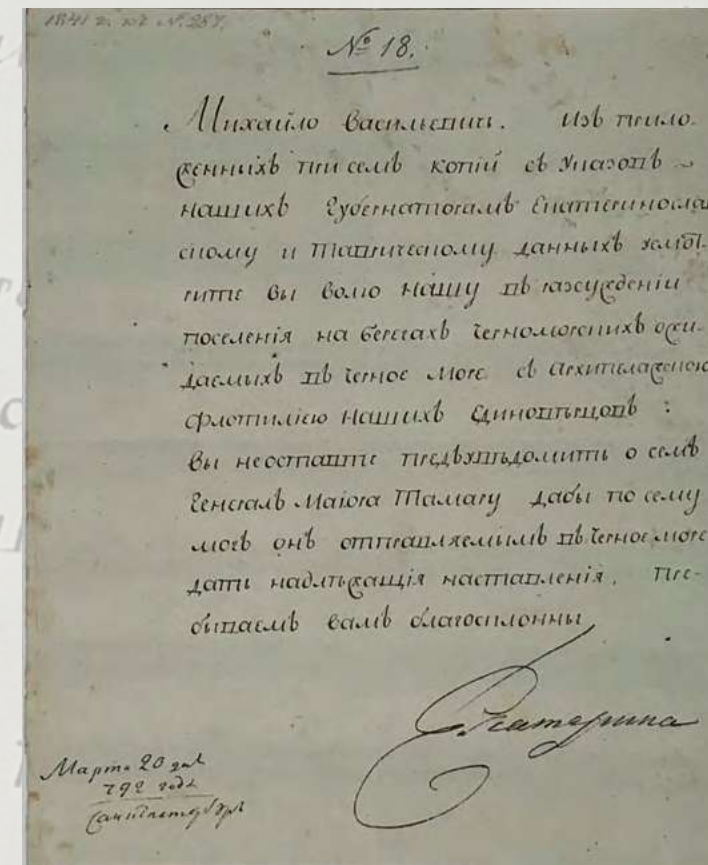 1841 г. № 257.
№ 18.
Михайло Васильевичь. Изъ прило-
женныхъ при семъ копий съ Указовъ
нашихъ Губернаторамъ Екатеринослав
скому и Таврическому данныхъ усмот-
рите вы волю нашу въ разсуждении
поселенія на берегахъ Черноморскихъ ожи-
даемыхъ въ Черное море съ Архипелажскою
флотилиею нашихъ Единоверцовъ :
вы неоставте предъувѣдомить о семъ
Генералъ Маіора Тамару дабы по сему
могъ онъ отправляемымъ въ Черное море
дать надлежащія наставленія. Пре-
бываемъ вамъ благосклонны
Екатерина
Марта 20 дня
792 года
Санктпетербургъ